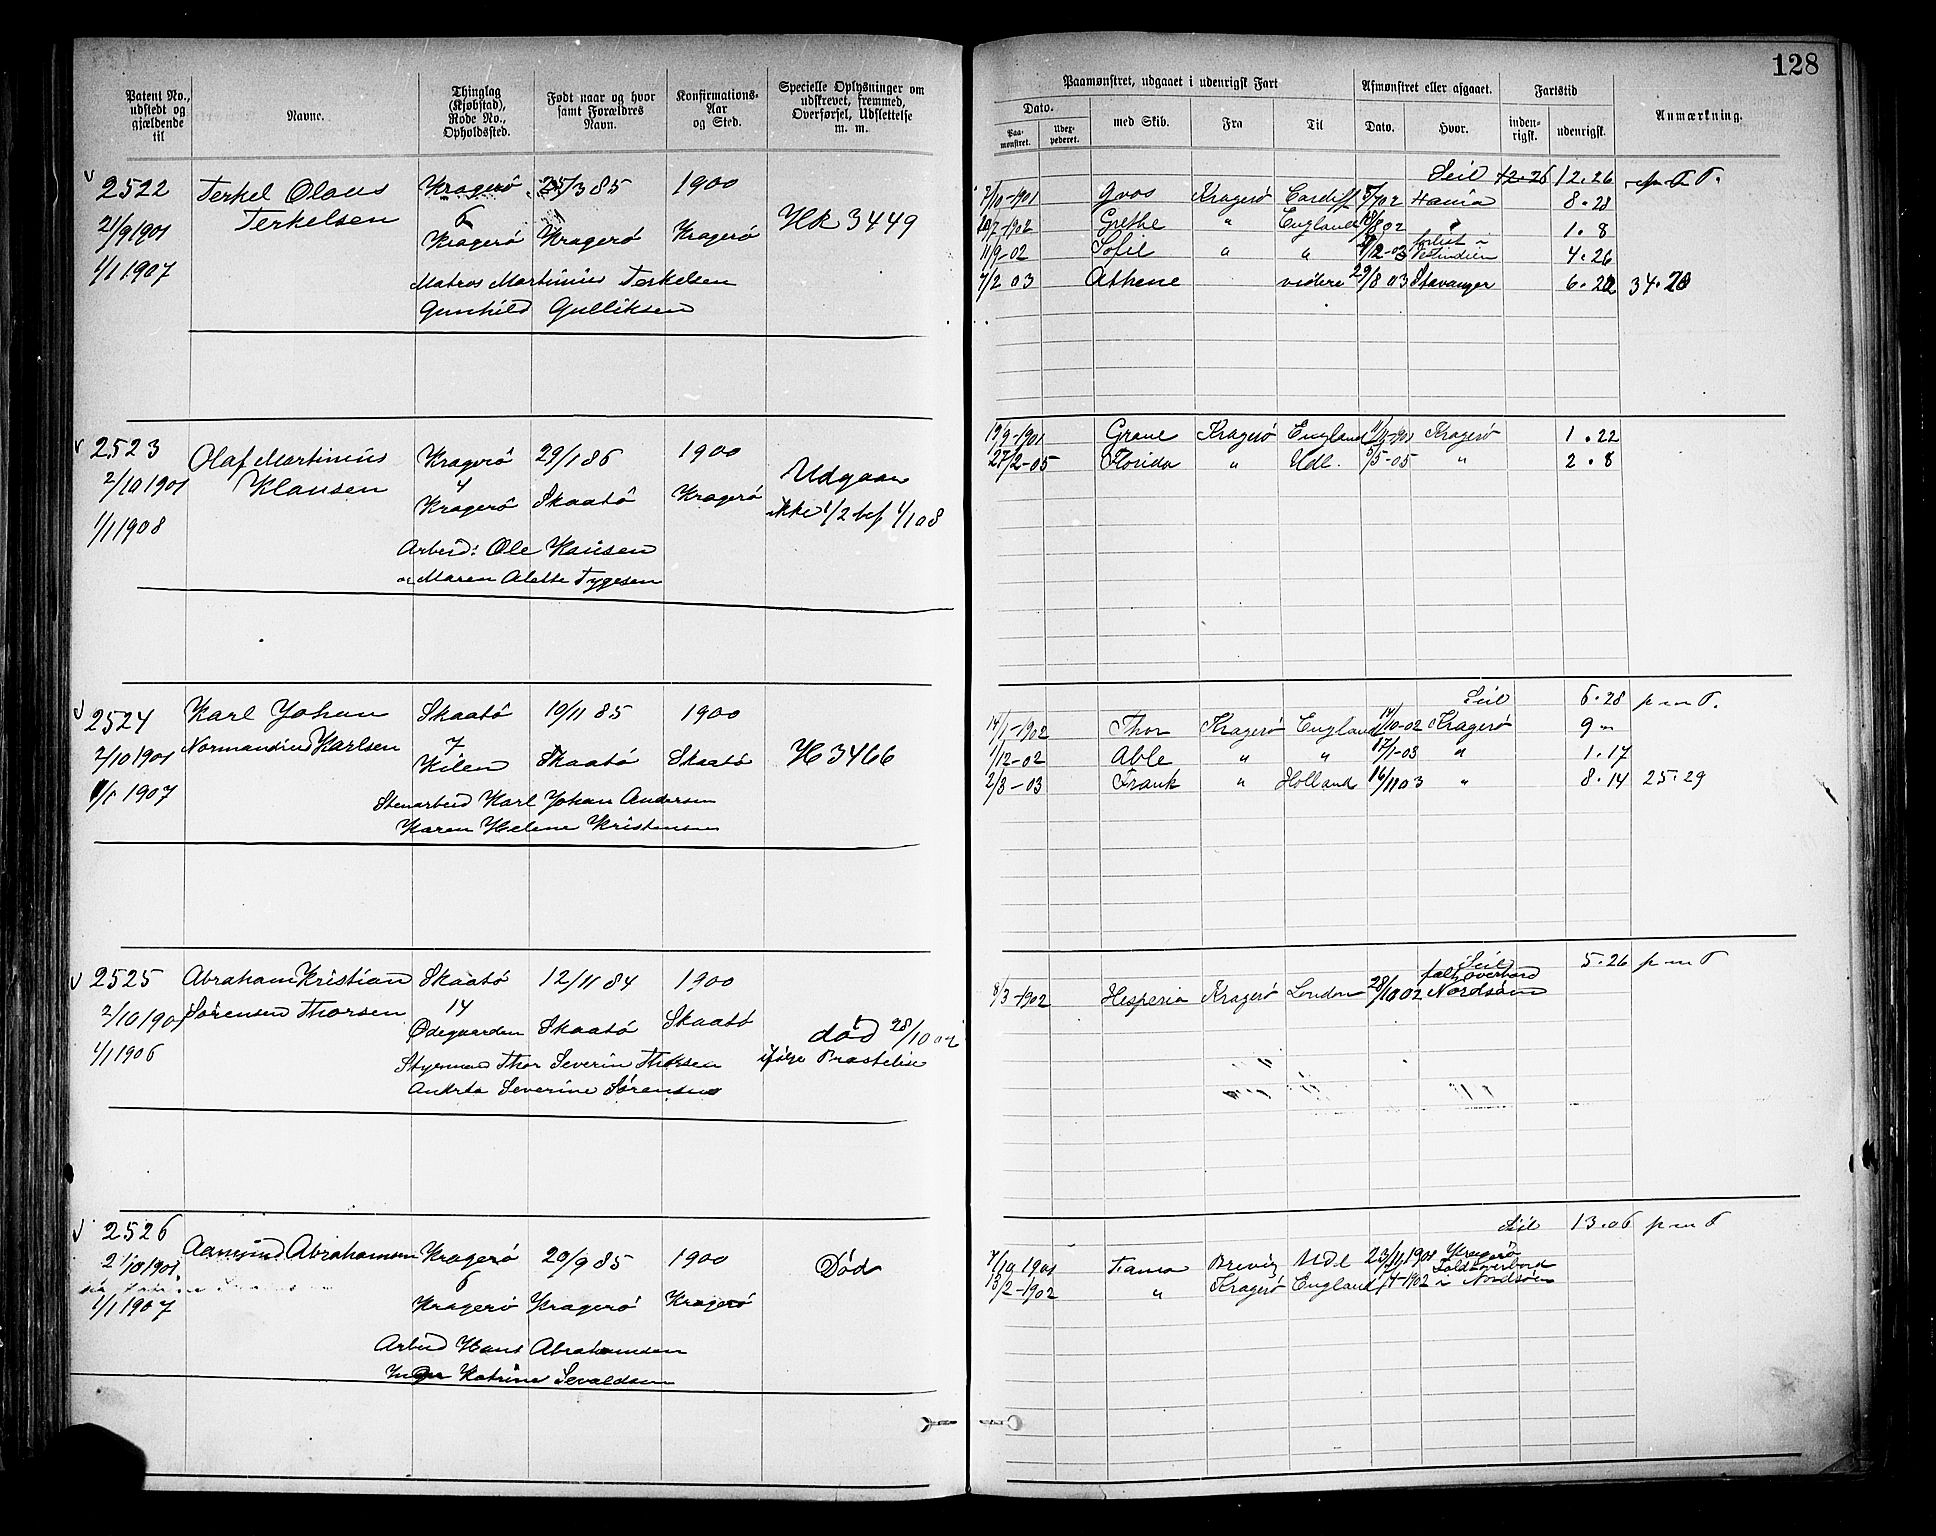 128
Patent No., udstedt og gjældende til
Navne.
Thinglag (Kjøbstad), Rode No., Opholdssted.
Født naar og hvor samt Forældres Navn.
Konfirmations-Aar og Sted.
Specielle Oplysninger om udskrevet, fremmed, Overførsel, Udslettelse m. m.
Paamønstret, udgaaet i udenrigsk Fart
Afmønstret eller afgaaet.
Fartstid
Anmærkning.
Dato.
Paa-mønstret.
Udex-pederet.
med Skib.
Fra
Til
Dato.
Hvor.
inden-rigsk.
udenrigsk.
2522 Terkel Olaus Kragerö 25/3 85 1900
21/9 1901 Terkelsen 6 Kragerö Kragerö Kragerö HR 3449
1/1 1907
Matros Martinius Terkelsen
Gunhild Gulliksen
Seil 12.26 12.26
7/10-1901 Gvos Kragerö Cardiff 5/7 02 8.28
Grethe " England 18/8 02 " 1.8
11/9-02 Sofie " " forlist i Vestindien 4.26
7/2 03 Athene videre 29/8 03 Stavanger 6.22 34.20
2523 Olaf Martinius Kragerö 29/1 86 1900
2/10 1901 Klausen 4 Kragerö Skaatö Kragerö Udgaar
1/1 1908 ikke 1/2 bef 1/1 08
Arbeid: Ole Klausen
og Maren Alette Tygesen
19/9-1901 Grane Kragerö England Kragerö 1.22
27/2-05 Florida " Udl. 5/5-05 " 2.8
2524 Karl Johan Skaatö 10/11 85 1900
2/10 1901 Normandius Karlsen 7 Kilen Skaatö Skaatö H 3466
1/1 1907
Stenarbeid Karl Johan Andersen
Karen Helene Kristensen
Seil 6.28 p m T.
14/1-1902 Thor Kragerö England 14/10-02 Kragerö 9 "
1/12-02 Able " " 17/1-03 " 1.17
2/3-03 Frank " Holland 16/11 03 " 8.14 25.29
2525 Abraham Kristian Skaatö 12/11 84 1900
2/10 1901 Sørensen Thorsen 14 Ødegaarden Skaatö Skaatö död 28/10 02
1/1 1906 ifølge Prestelise
Styrmand Thor Severin Thorsen
Severine Sørensen
Seil 5.26 p m T
8/3-1902 Hesperia Kragerö London 28/10 02 faldt overbord Nordsøen
2526 Aamund Abrahamsen Kragerö 20/9 85 1900 Död
2/10 1901 6
1/1 1907 Kragerö Kragerö Kragerö
Arbeid Hans Abrahamsen
Inger Katrine Sevaldsen
Seil 13.06 p m T
7/10 1901 Brevig Udl 23/11 1901 Kragerö
13/2-1902 " Kragerö England /4-1902 Faldt overbord i Nordsøen